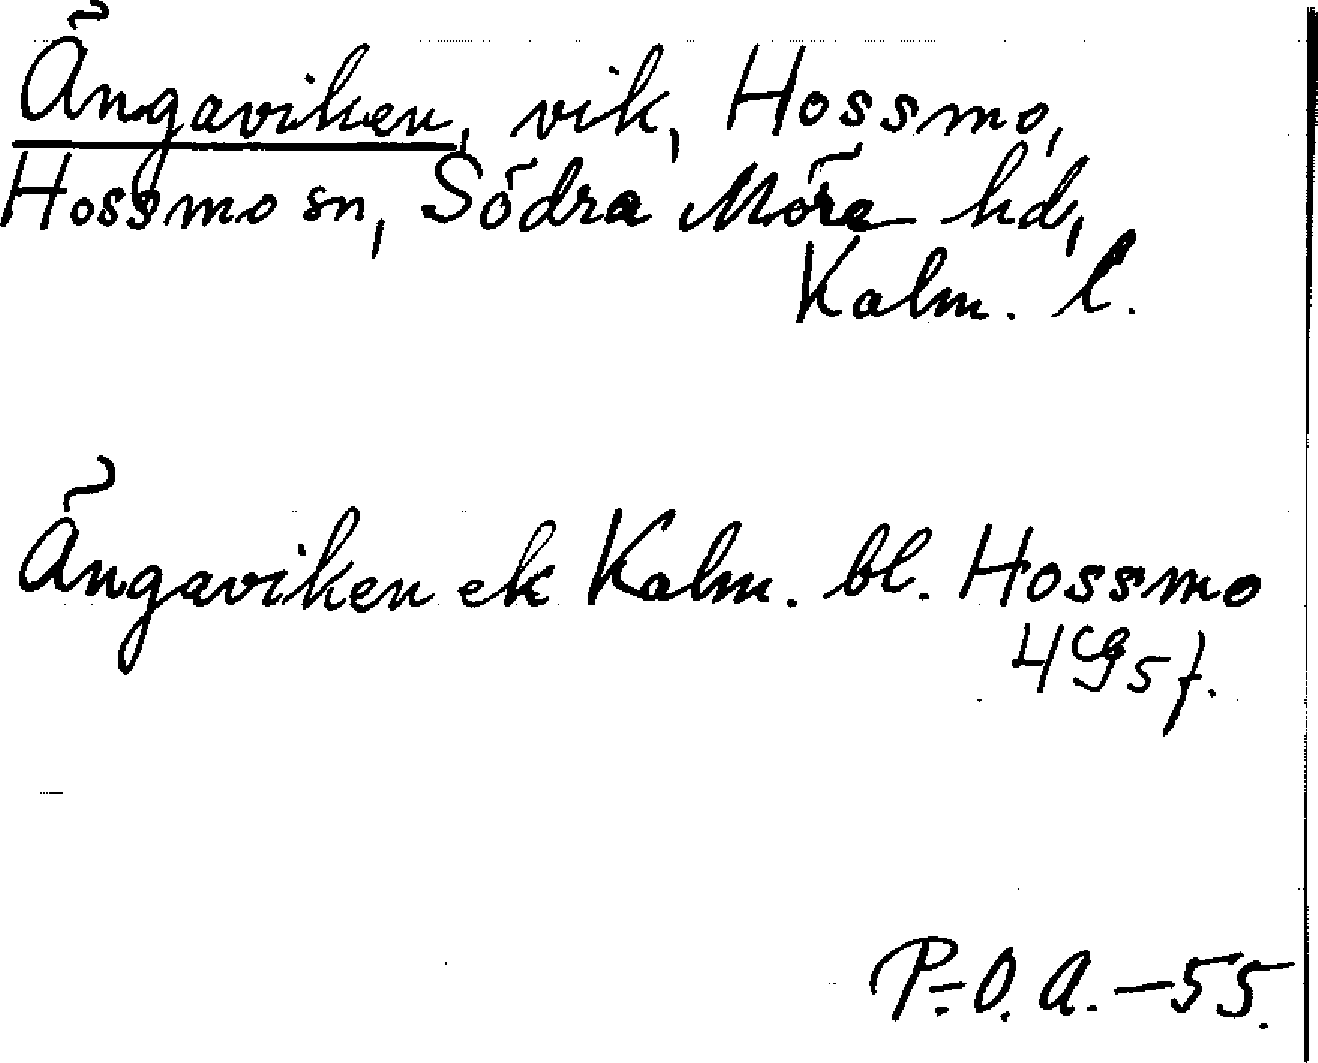 Ängaviken, vik, Hossmo,
Hossmo sn, Södra Möre hd,
Kalm. l.
Ängaviken ek Kalm. bl. Hossmo
4 G 5 f.
P.-O. A. - 55.